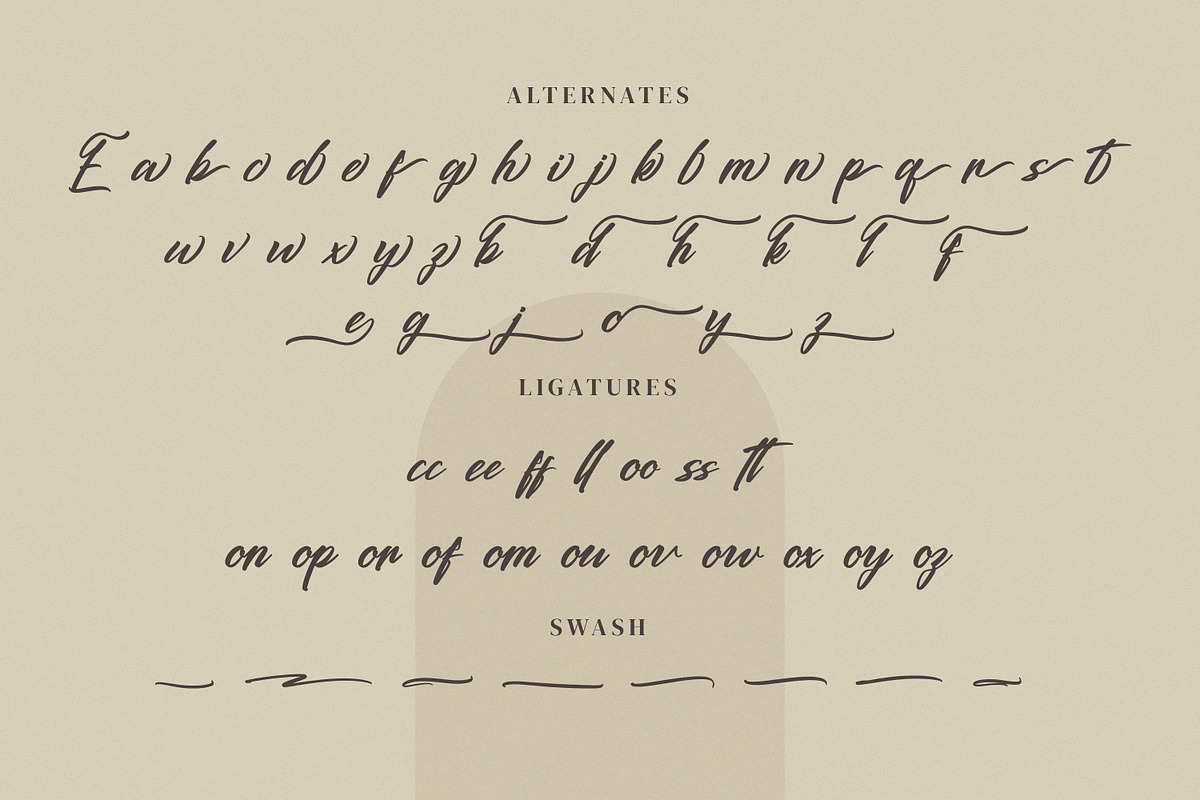 ALTERNATES
E a b c d e f g h i j k l m n p q r s t
u v w x y z b d h k l f
e g j o y z
LIGATURES
cc ee ff ll oo ss tt
on op or of om ou ov ow ox oy oz
SWASH